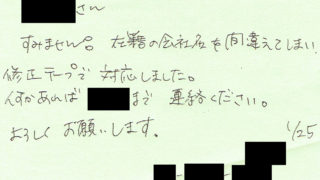 さん
すみません。在籍の会社名を間違えてしまい
修正テープで対応しました。
何かあれば まで 連絡ください。
よろしくお願いします。
1/25